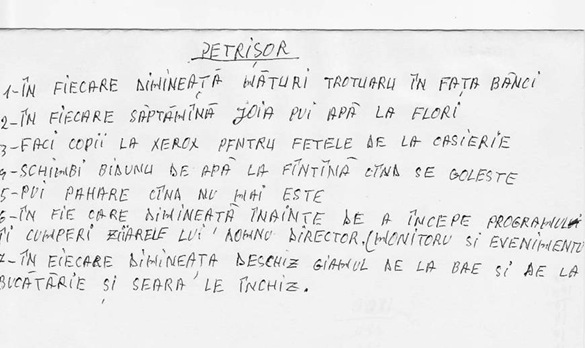 PETRIȘOR
1-ÎN FIECARE DIMINEAȚĂ MĂTURI TROTUARU ÎN FAȚA BĂNCI
2-ÎN FIECARE SĂPTĂMÎNĂ JOIA PUI APĂ LA FLORI
3-FACI COPII LA XEROX PENTRU FETELE DE LA CASIERIE
4-SCHIMBI BIDUNU DE APĂ LA FÎNTÎNĂ CÎND SE GOLESTE
5-PUI PAHARE CÎND NU MAI ESTE
6-ÎN FIE CARE DIMINEAȚĂ ÎNAINTE DE A ÎNCEPE PROGRAMUL
ÎI CUMPERI ZIARELE LUI DOMNU DIRECTOR.(MONITORU SI EVENIMENTU
7-ÎN FIECARE DIMINEAȚA DESCHIZ GIAMUL DE LA BAE SI DE LA
BUCĂTĂRIE ȘI SEARA LE ÎNCHIZ.